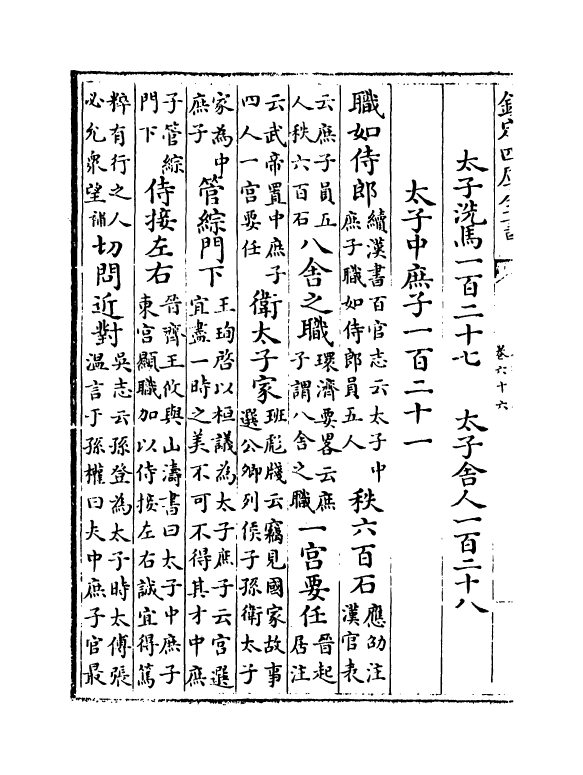 欽定四庫全書 卷六十六
太子洗馬一百二十七 太子舍人一百二十八
太子中庶子一百二十一
職如侍郎 續漢書百官志云太子中庶子職如侍郎員五人 秩六百石 應劭注漢官表
云庶子員五人秩六百石 八舍之職 環濟要畧云庶子謂八舍之職 一宫要任 晉起居注
云武帝置中庶子四人一宫要任 衛太子家 班彪牋云竊見國家故事選公卿列侯子孫衛太子
家為中庶子 管綜門下 王珣啓以桓議為太子庶子云宫選宜盡一時之美不可不得其才中庶
子管綜門下 侍接左右 晉齊王攸與山濤書曰太子中庶子東宫顯職加以侍接左右誠宜得篤
粹有行之人必允衆望補 切問近對 吳志云孫登為太子時太傅張温言于孫權曰夫中庶子官最